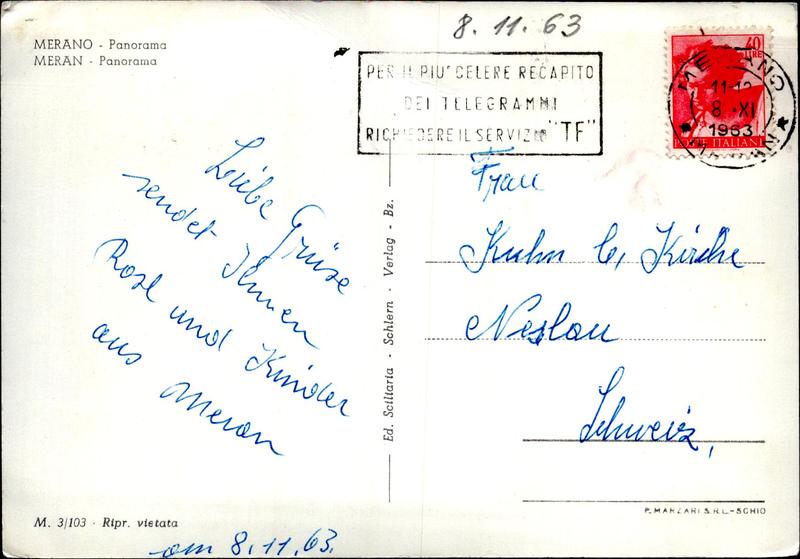 8.11.63
MERANO - Panorama
MERAN - Panorama
PER IL PIU' CELERE RECAPITO
DEI TELEGRAMMI
RICHIEDERE IL SERVIZIO "TF"
40
LIRE
POSTE ITALIANE
MERANO
11-12
8 XI
1963
Liebe Grüse
sendet Ihnen
Rosl und Kinder
aus Meran
Ed. Sciliaria - Schlern - Verlag - Bz.
Frau
Kuhn b, Kirche
Neslau
Schweiz,
M. 3/103 - Ripr. vietata
am 8.11.63.
P. MARZARI S.R.L.-SCHIO